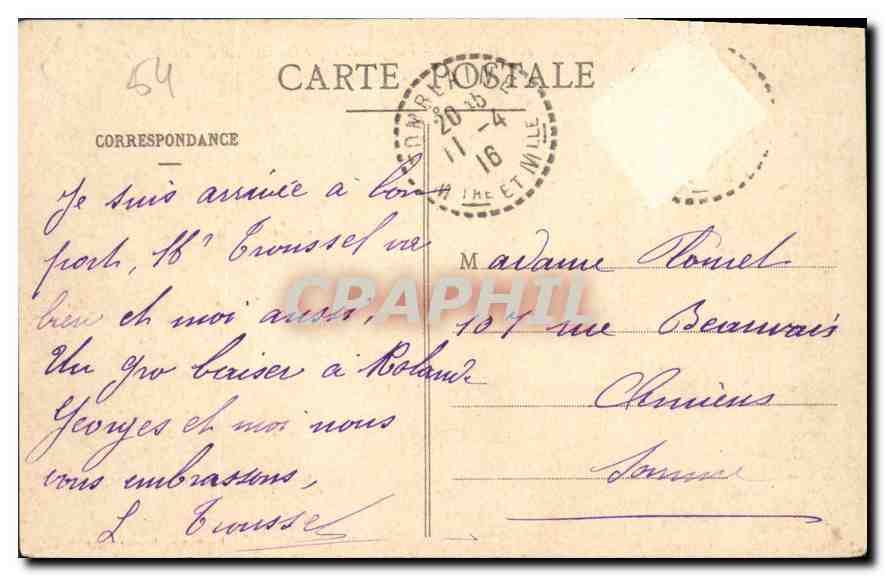 54
CARTE POSTALE
CORRESPONDANCE
20 15
11 -4
16
ET M
Je suis arrivée à bon
port, Mr Troussel va
bien et moi aussi,
Un gro baiser à Roland
Georges et moi nous
vous embrassons,
L Troussel
Madame
107 rue Beauvais
Amiens
Somme
CPAPHIL